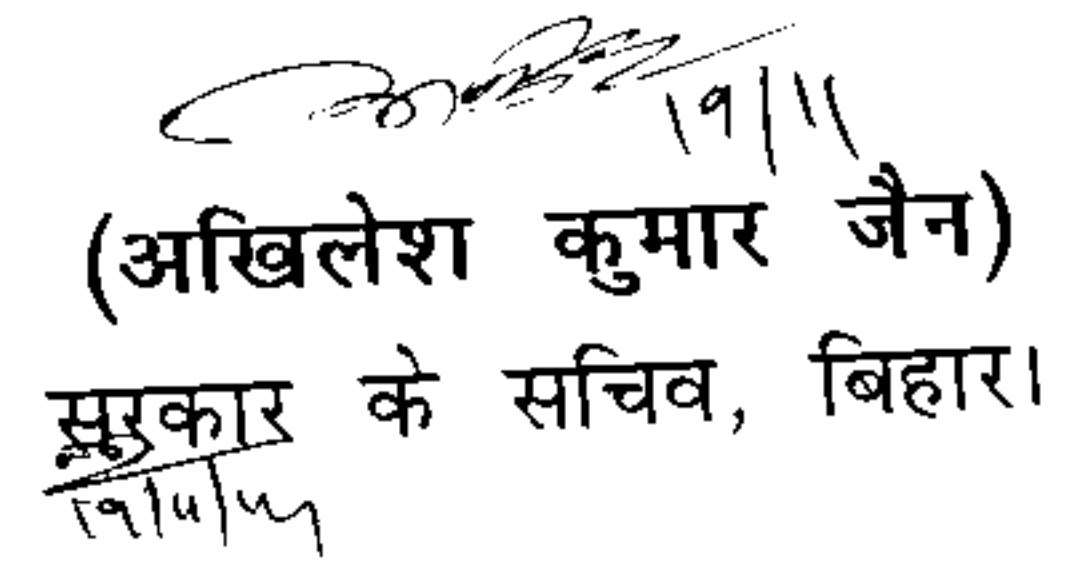 19/11
(अखिलेश कुमार जैन)
सरकार के सचिव, बिहार।